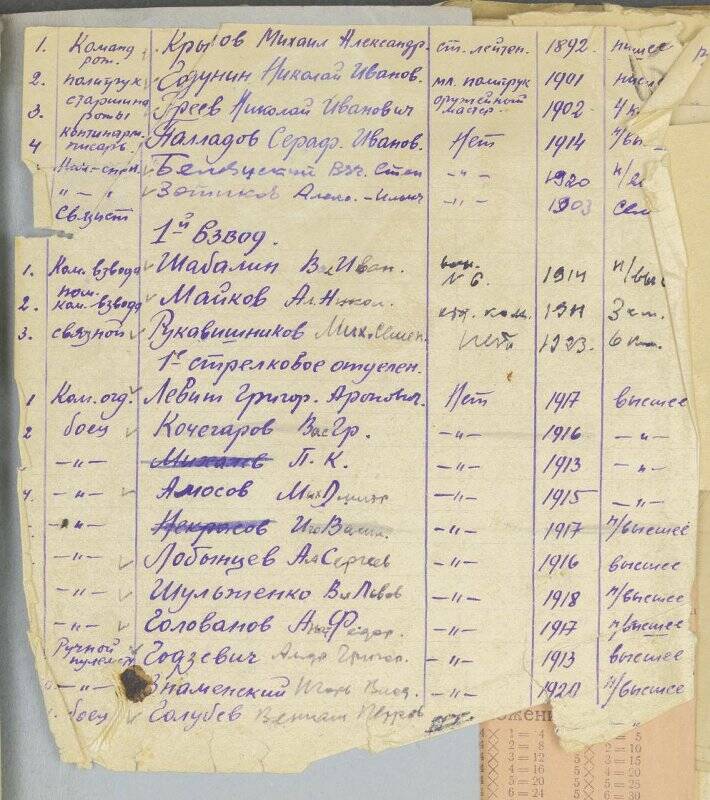 1. Команд. рот. Крылов Михаил Александр. ст. лейтен. 1892.
2. политрук Годунин Николай Иванов. мл. политрук 1901
3. старшина роты Греев Николай Иванович оружейный мастер 1902
4 писарь Палладов Сераф. Иванов. Нет 1914
Вяч. Степ -"- 1920
"-" -"- 1903
Связист
1й взвод.
1. Ком. взвода Шабалин Вас Иван. N 6. 1911
2. пом. ком. взвода Майков Ал. Никол. отд. ком. 1911 3 кл.
3. связной Рукавишников Мих. Семен. Нет 1923. 6 кл.
1е стрелковое отделен.
1 Ком. отд. Левит Григор. Аронович. Нет 1917 высшее
2 боец Кочегаров Вас Гр. -"- 1916 -"-
-"- Михалев П. К. -"- 1913 -"-
4. -"- Амосов Мих -"- 1915 -"-
-"- Некрасов Васил. -"- 1917 н/высшее
-"- Лобынцев Ал Сергеев -"- 1916 высшее
-"- Шульженко Вл Львов -"- 1918 н/высшее
-"- Голованов Федор. -"- 1917 н/высшее
Ручной пулемет Годзевич Григор. -"- 1913 высшее
-"- Знаменский Игорь Влад. -"- 1920 н/высшее
боец Голубев Вениам Петров -"-
1 = 4
2 = 8
3 = 12
4 = 16
5 = 20
6 = 24
1 = 5
2 = 10
3 = 15
4 = 20
5 = 25
6 = 30